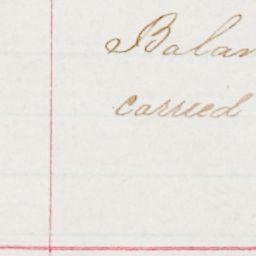 Balan
carried